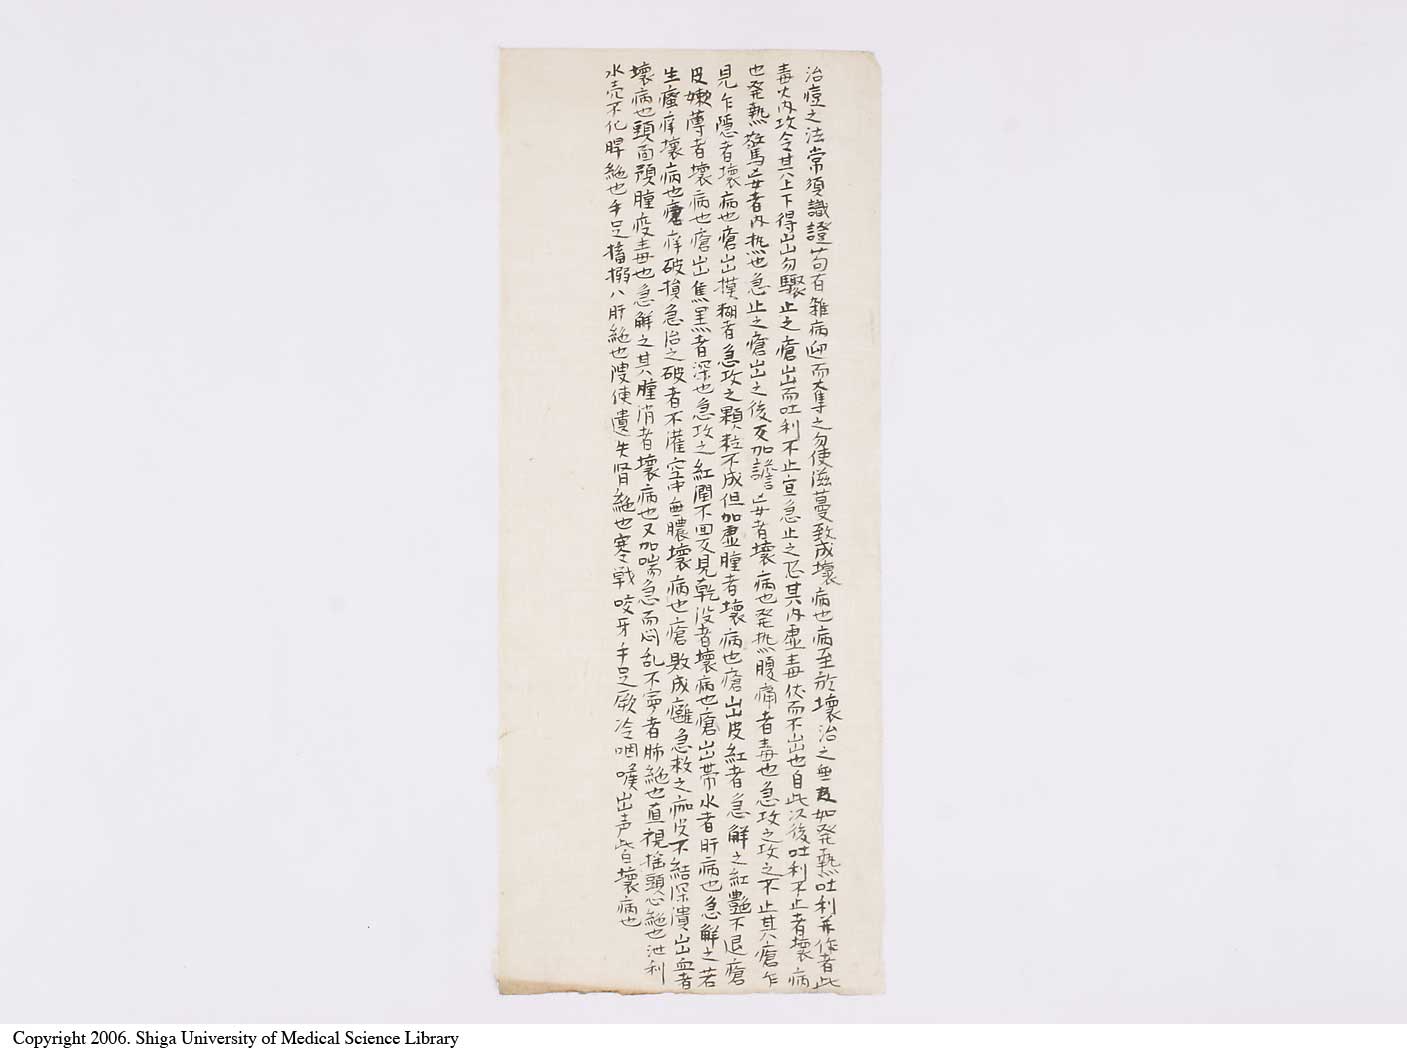 治痘之法常須識證苟有雑病迎而奪之勿使滋蔓致成壞病也病至於壞治之無及如発熱吐利并作者此
毒火内攻令其上下得出勿驟止之瘡出而吐利不止宜急止之恐其内虚毒伏而不出也自此以後吐利不止者壞病
也発熱驚妄者内热也急止之瘡出之後反加譫妄者壞病也発热腹痛者毒也急攻之攻之不止其瘡乍
見乍隠者壞病也瘡出摸糊者急攻之顆粒不成但加虚腫者壞病也瘡出皮紅者急解之紅艶不退瘡
皮嫩薄者壞病也瘡出焦黒者深也急攻之紅潤不回反見乾没者壞病也瘡出帯水者肝病也急解之若
生瘙痒壞病也瘡痒破損急治之破者不灌空中無膿壞病也瘡敗成癰急救之痂皮不結深潰出血者
壞病也頭面預腫疫毒也急解之其腫消者壞病也又加喘急而悶乱不寧者肺絶也直視揺頭心絶也泄利
水売不化脾絶也手足搐搦八肝絶也溲使遺失腎絶也寒戦咬牙手足厥冷咽喉出声此皆壞病也
Copyright 2006. Shiga University of Medical Science Library